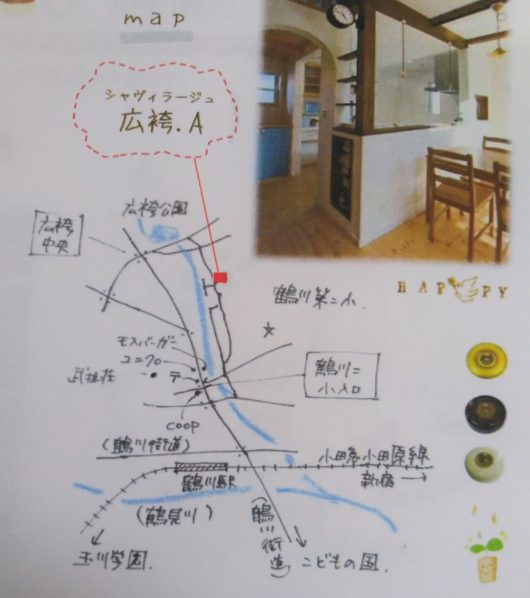 map
シャヴィラージュ
広袴.A
広袴公園
広袴
中央
鶴川第二小.
HAPPY
モスバーガー
ユニクロ
〒
鶴川二
小入口
COOP
(鶴川街道)
小田急小田原線
鶴川駅
新宿→
(鶴見川)
(鶴川街道)
玉川学園.
こどもの国.